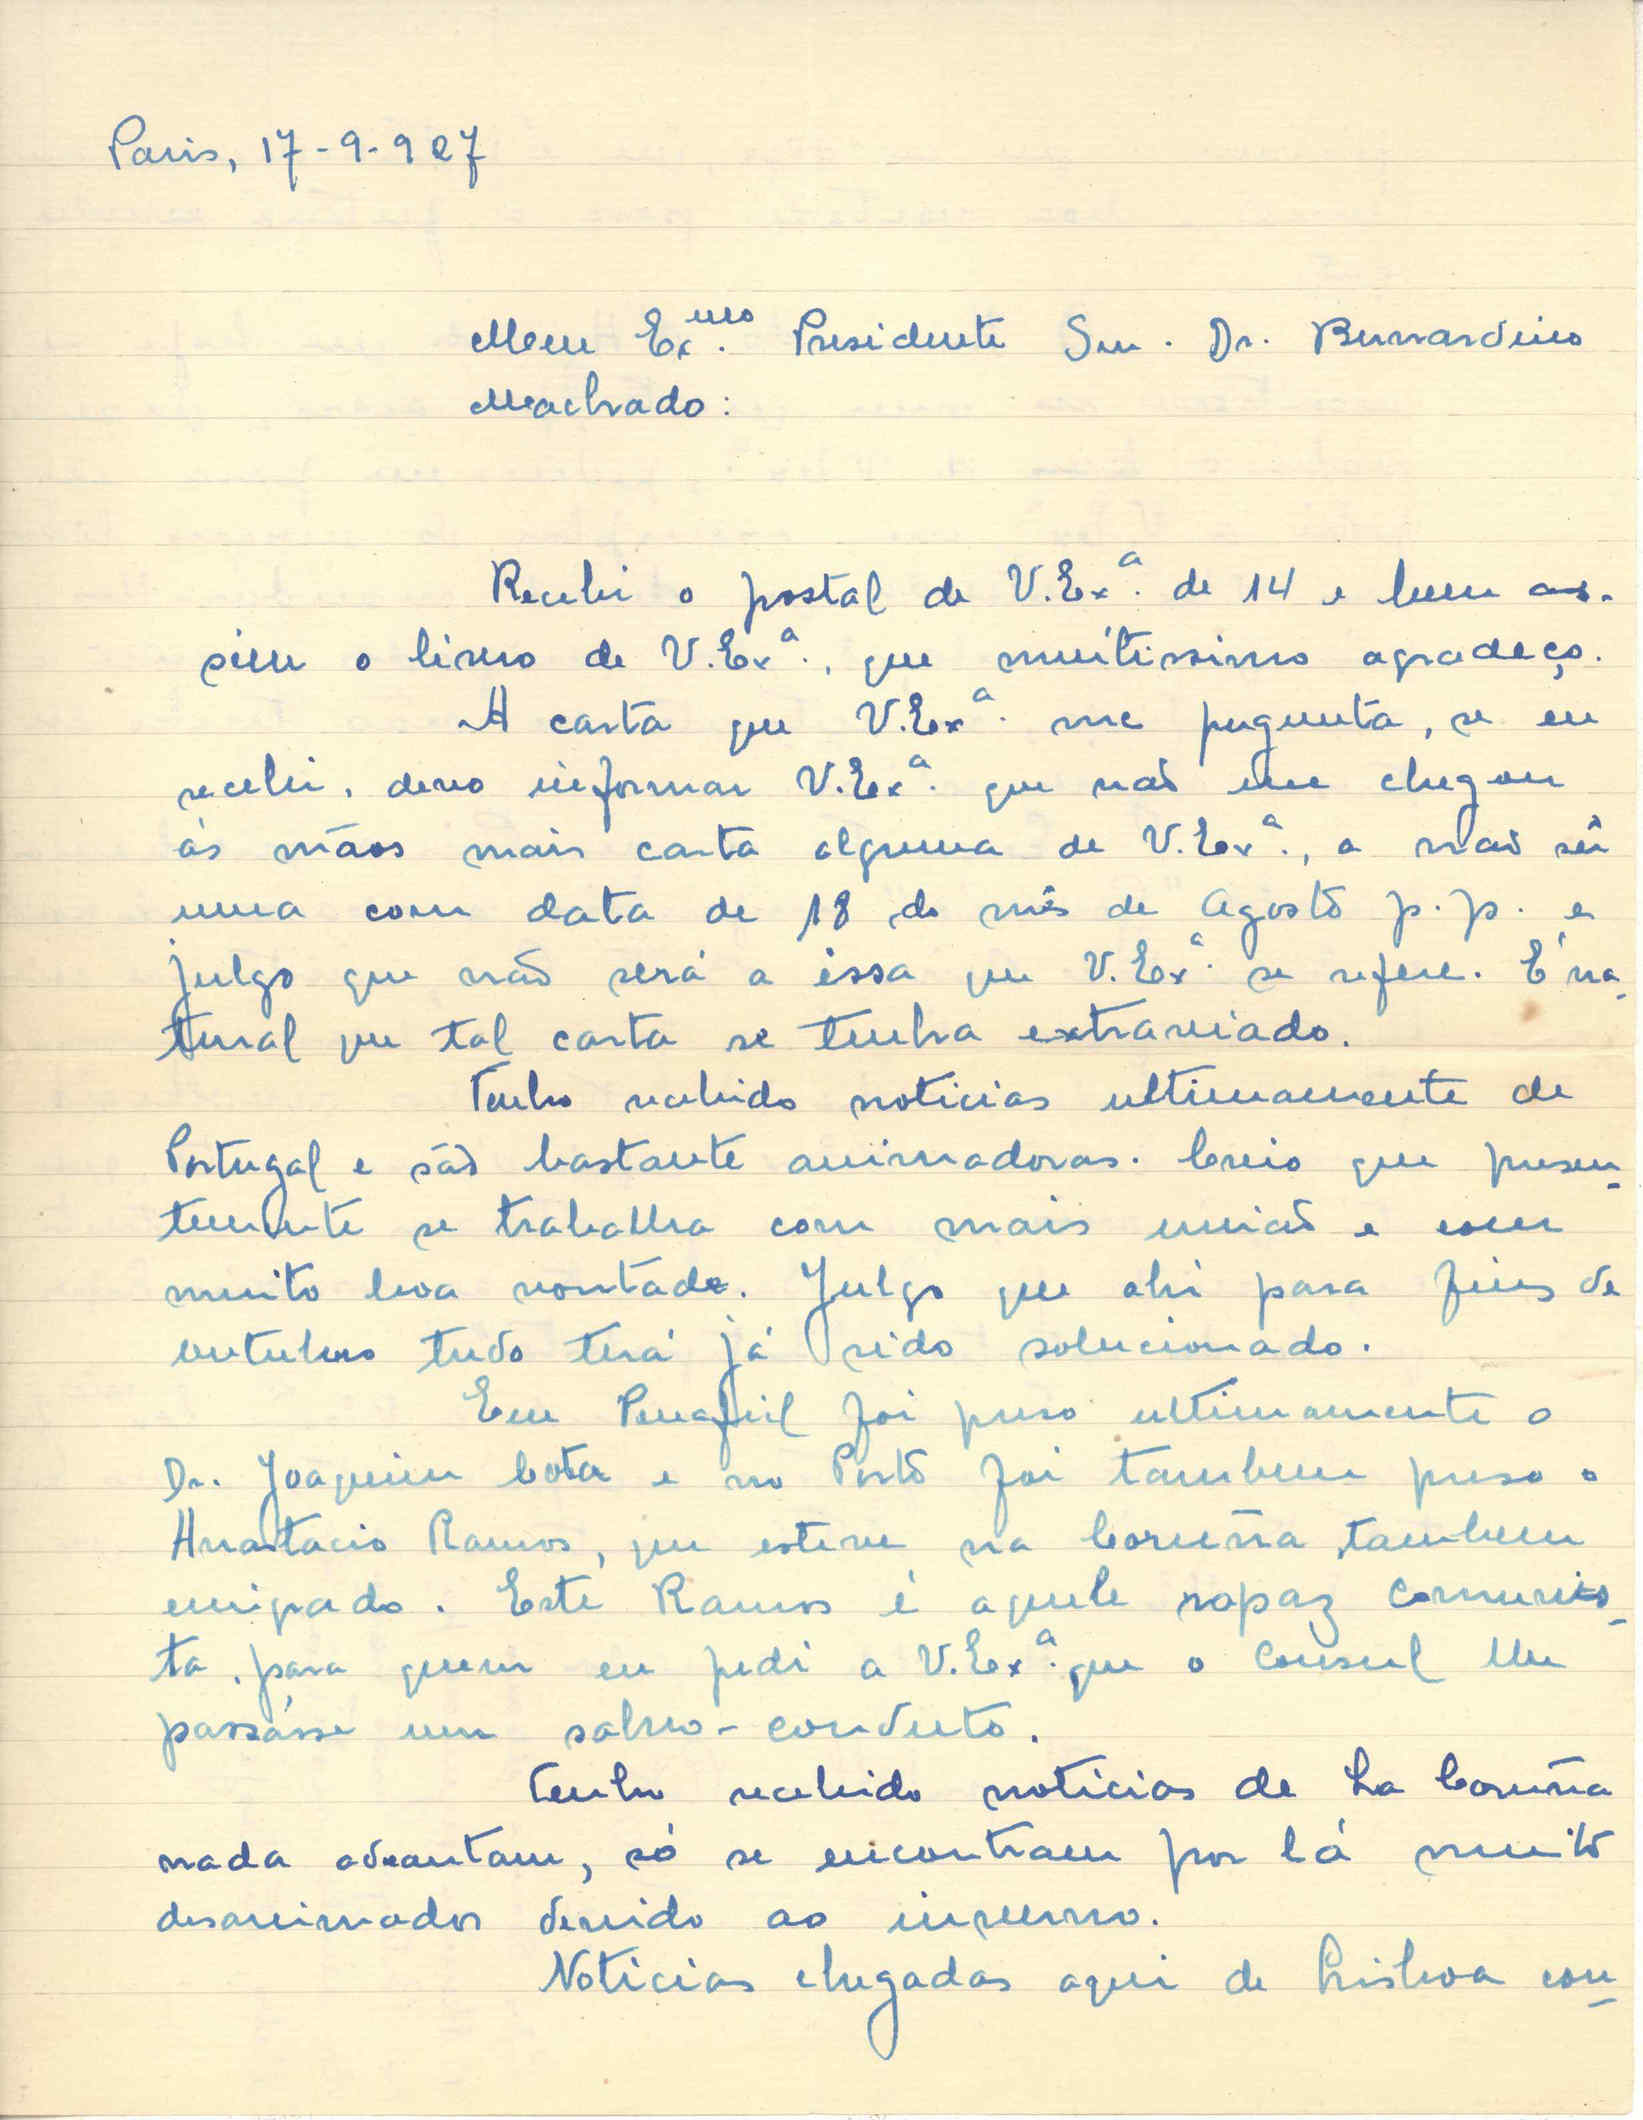 Paris, 17-9-927
Meu Ex.mo Presidente Snr. Dr. Bernardino
Machado:
Recebi o postal de V.Ex.ª de 14 e bem as-
sim o livro de V.Ex.ª, que muitissimo agradeço.
A carta que V.Ex.ª me pregunta, se eu
recebi, devo informar V.Ex.ª que não me chegou
ás mãos mais carta alguma de V.Ex.ª, a não sêr
uma com data de 18 do mês de Agosto p.p. e
julgo que não será a éssa que V.Ex.ª se refere. É na-
tural que tal carta se tenha extraviado.
Tenho recebido noticias ultimamente de
Portugal e são bastante animadoras. Creio que presen-
temente se trabalha com mais união e com
muito boa vontade. Julgo que ahi para fins de
outubro tudo terá já sido solucionado.
Em Penafiel foi preso ultimamente o
Dr. Joaquim Cota e no Porto foi tambem preso o
Anastacio Ramos, que esteve na Coruña tambem
emigrado. Este Ramos é aquele rapaz comunis-
ta, para quem eu pedi a V.Ex.ª que o Consul lhe
passásse um salvo-conduto.
Tenho recebido noticias de La Coruña
nada adeantam, só se encontram por lá muito
desanimados devido ao inverno.
Noticias chegadas aqui de Lisboa con-